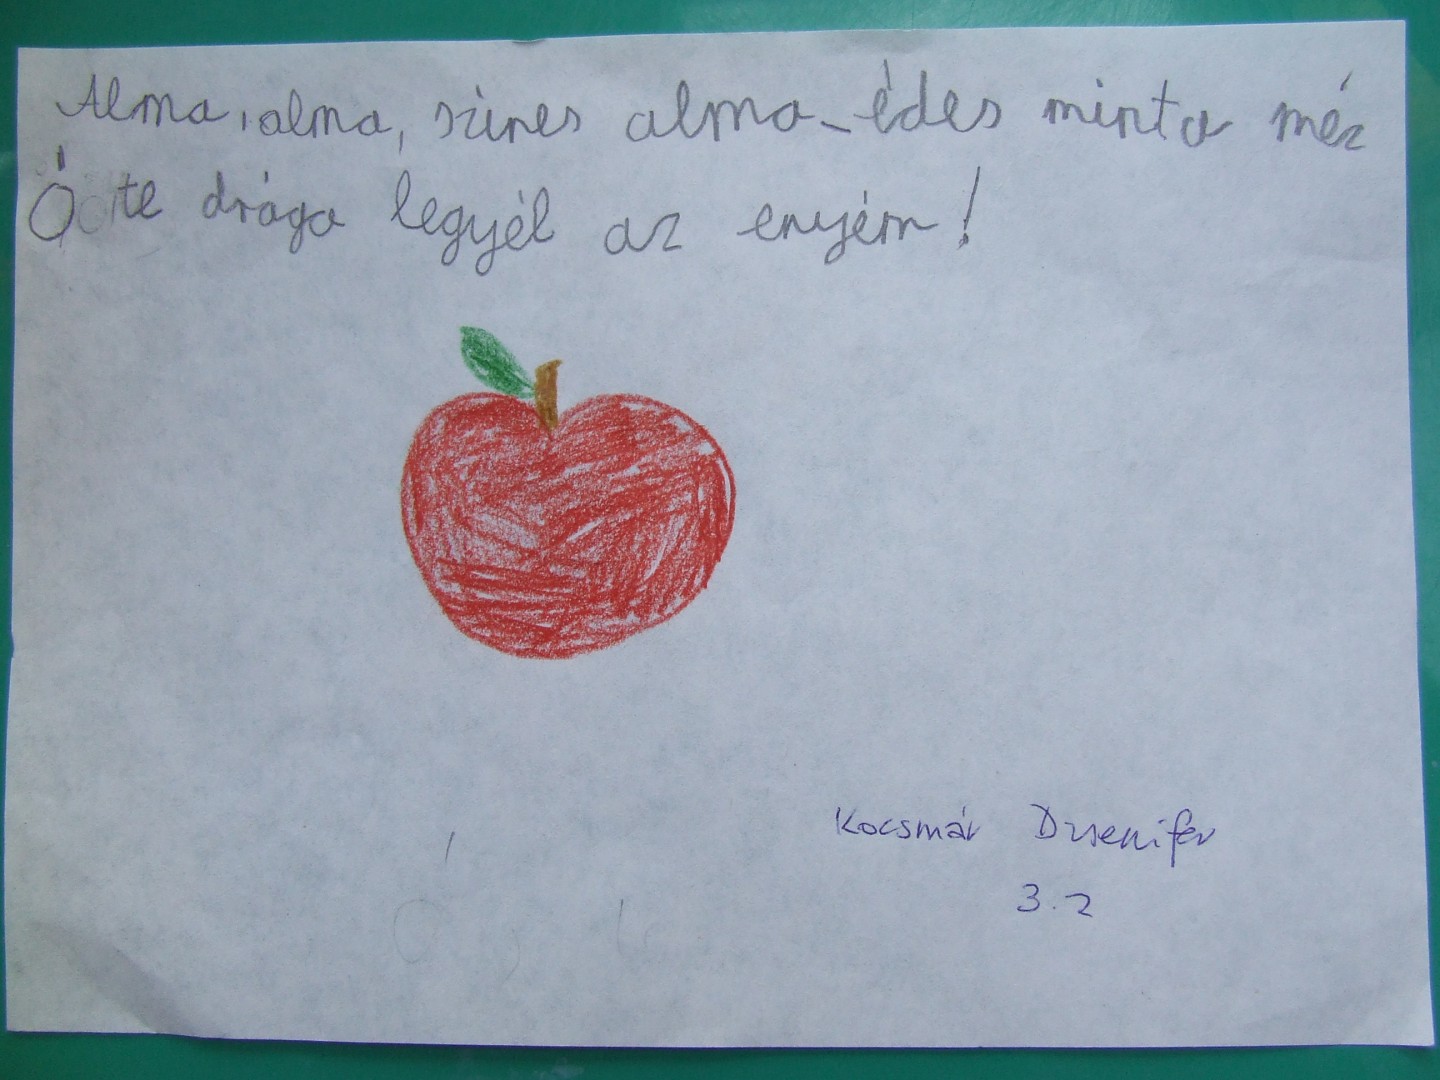 Alma, alma, színes alma - édes minta méz
Ó te drága legyél az enyém!
Kocsmár Dzsenifer
3.2